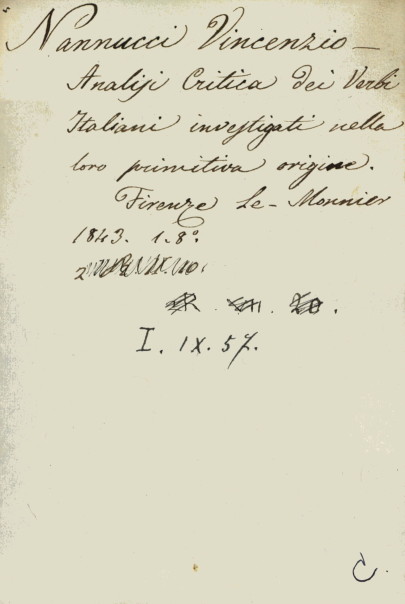 Nannucci Vincenzio —
Analisi Critica dei Verbi
Italiani investigati nella
loro primitiva origine.
Firenze Le-Monnier
1843. 1.8°.
I. IX. 57.
C.